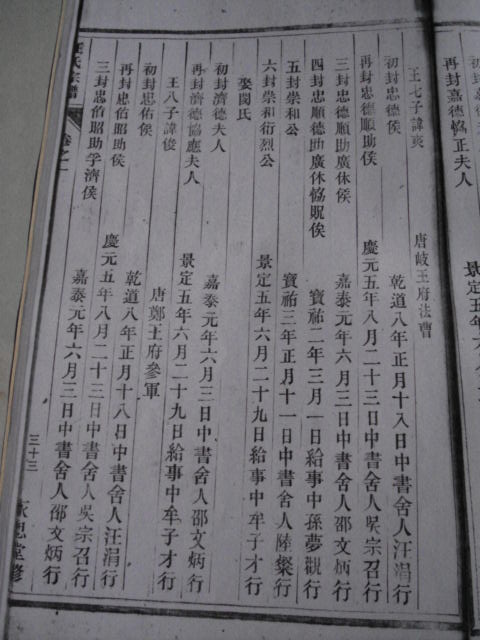 再封嘉德協正夫人
景定五年六月二
王七子諱爽 唐岐王府法曹
初封忠德侯 乾道八年正月十八日中書舍人汪涓行
再封忠德順助侯 慶元五年八月二十三日中書舍人吳宗召行
三封忠德順助廣休侯 嘉泰元年六月三日中書舍人邵文炳行
四封忠順德助廣休協貺侯 寶祐二年三月一日給事中孫夢觀行
五封崇和公 寶祐三年正月十一日中書舍人陸粲行
六封崇和衍烈公 景定五年六月二十九日給事中牟子才行
娶閔氏
初封濟德夫人 嘉泰元年六月三日中書舍人邵文炳行
再封濟德協應夫人 景定五年六月二十九日給事中牟子才行
王八子諱俊 唐鄭王府參軍
初封忠佑侯 乾道八年正月十八日中書舍人汪涓行
再封忠佑昭助侯 慶元五年八月二十三日中書舍人吳宗召行
三封忠佑昭助孚濟侯 嘉泰元年六月三日中書舍人邵文炳行
氏宗譜 卷之一 三十三 思堂修